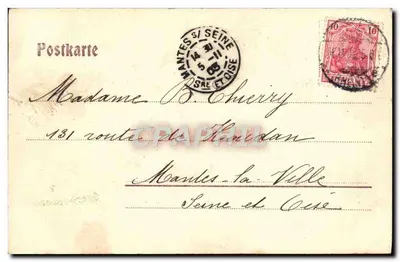 Postkarte
MANTES S/ SEINE
14 30
5-11
03
SNE ET OISE
10 10
Madame B. Thierry
131 route de Houdan
Mantes-la-Ville
Seine et Oise